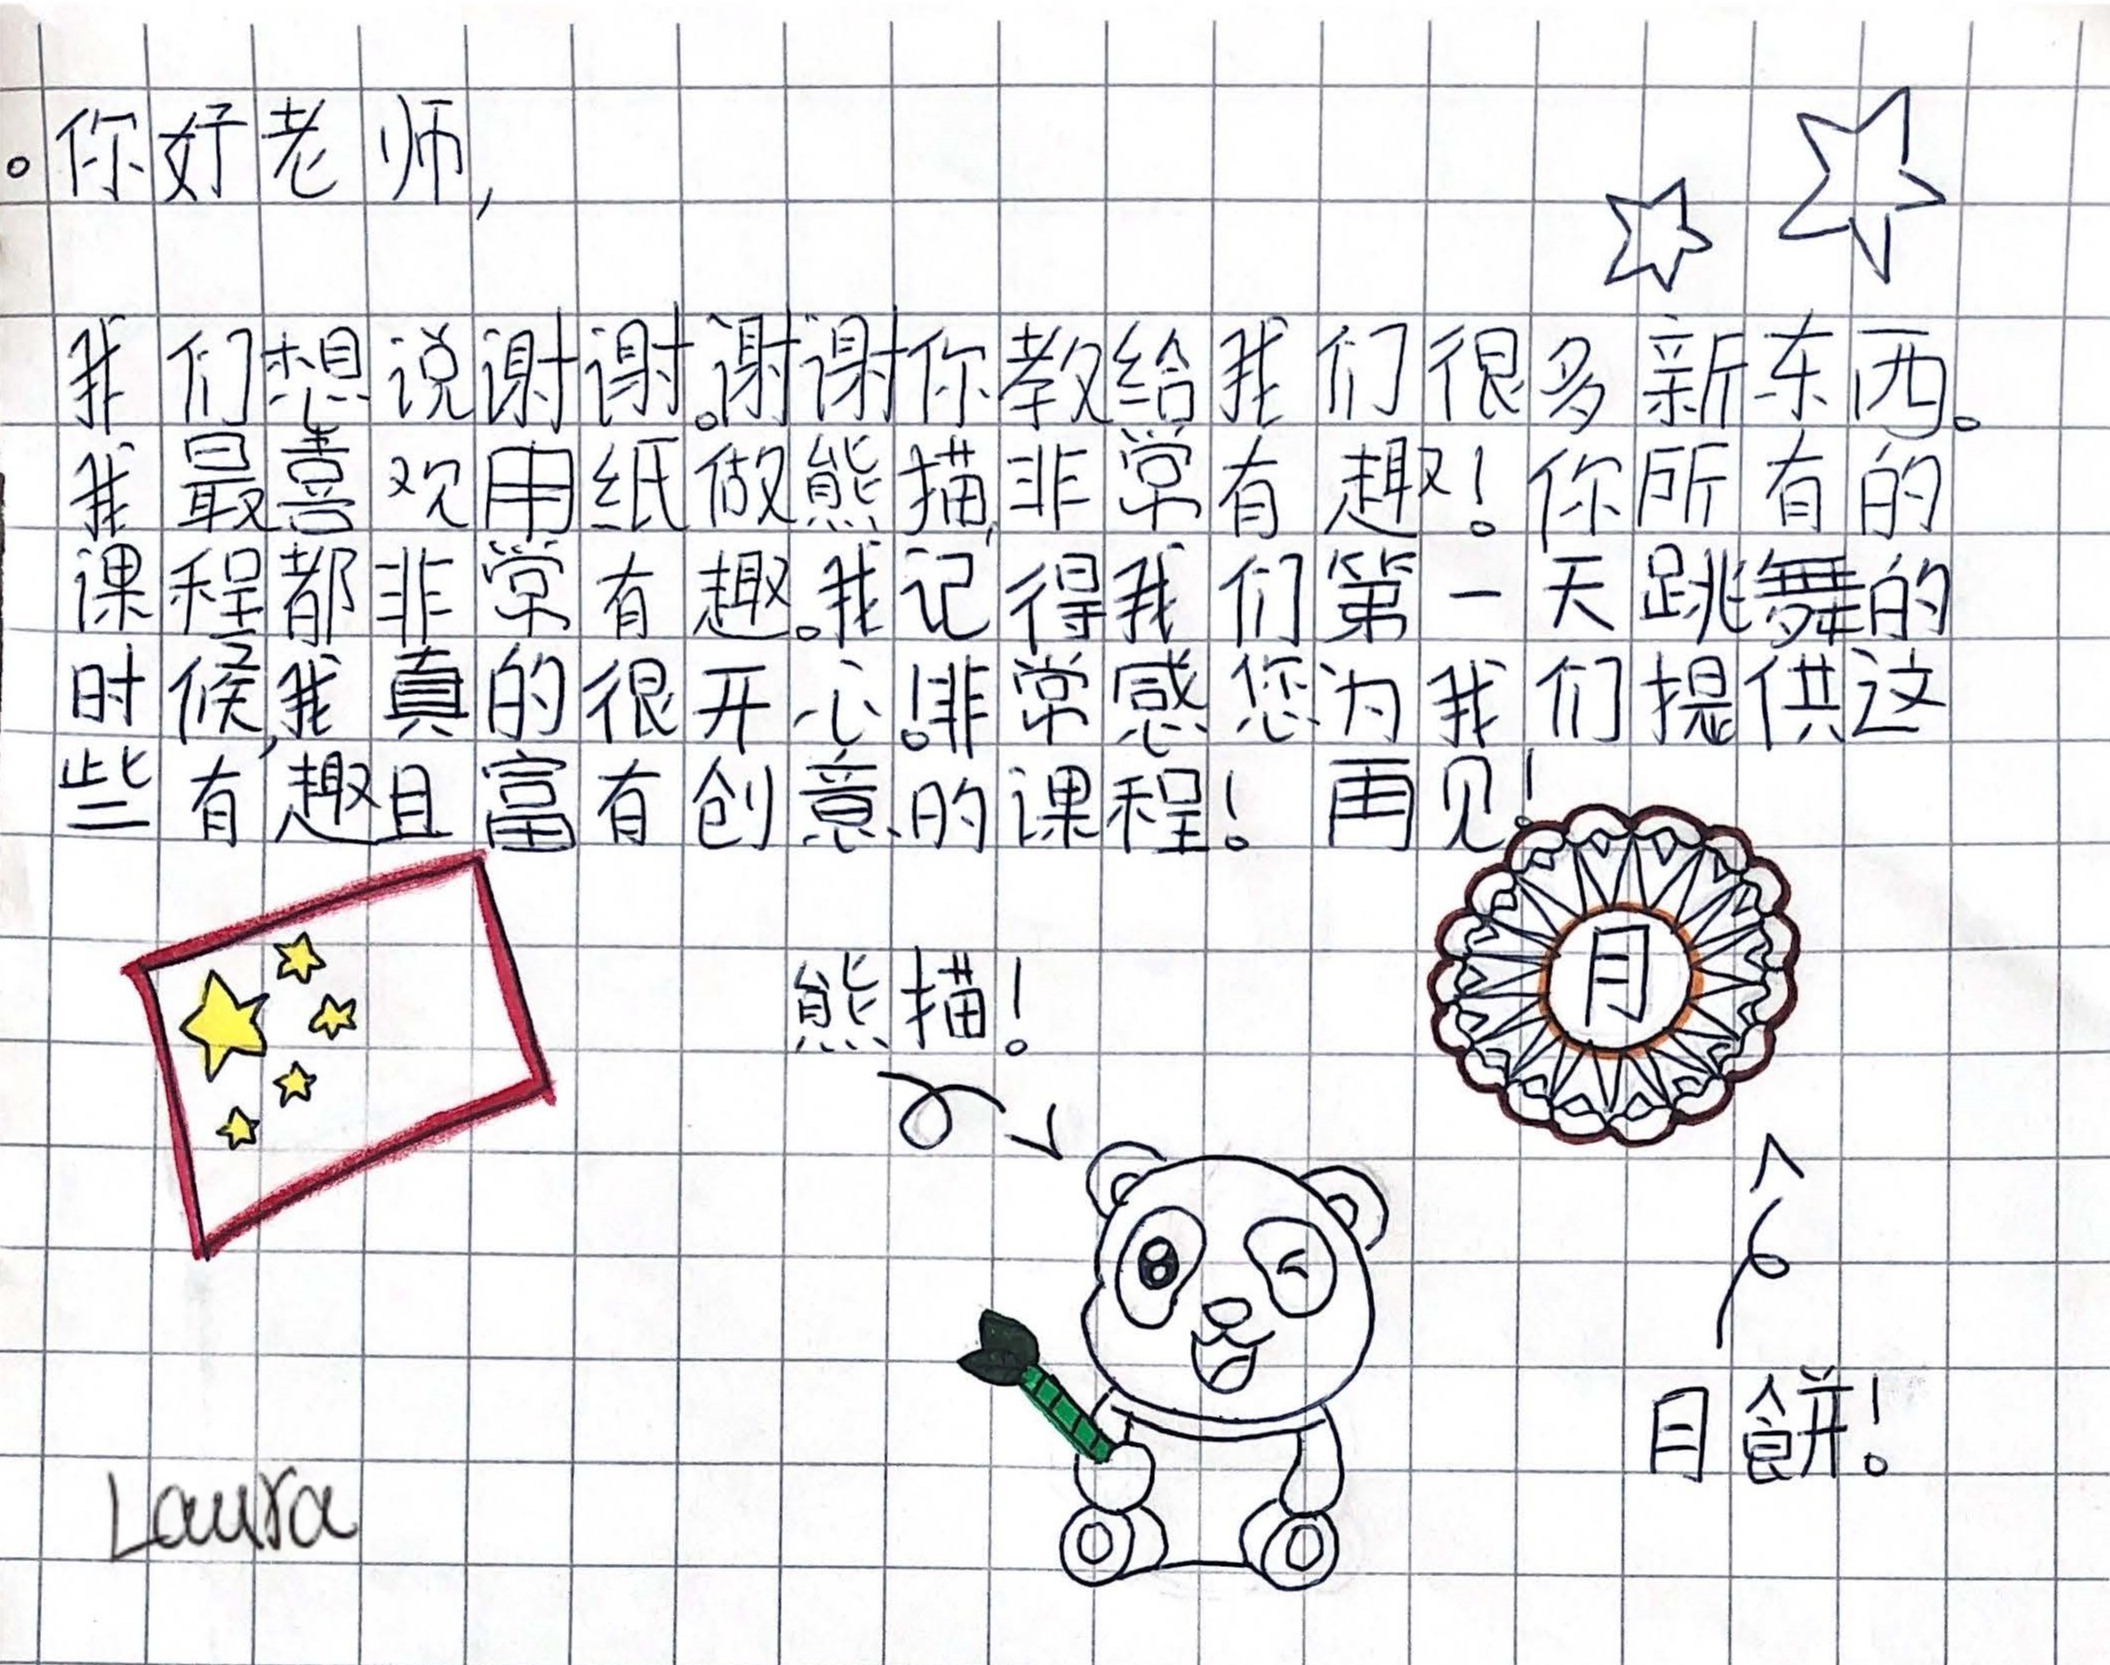 你好老师,
我们想说谢谢。谢谢你教给我们很多新东西。
我最喜欢用纸做熊描,非常有趣!你所有的
课程都非常有趣。我记得我们第一天跳舞的
时候,我真的很开心!非常感您为我们提供这
些有趣且富有创意的课程!再见!
月
熊描!
月餅!
Laura